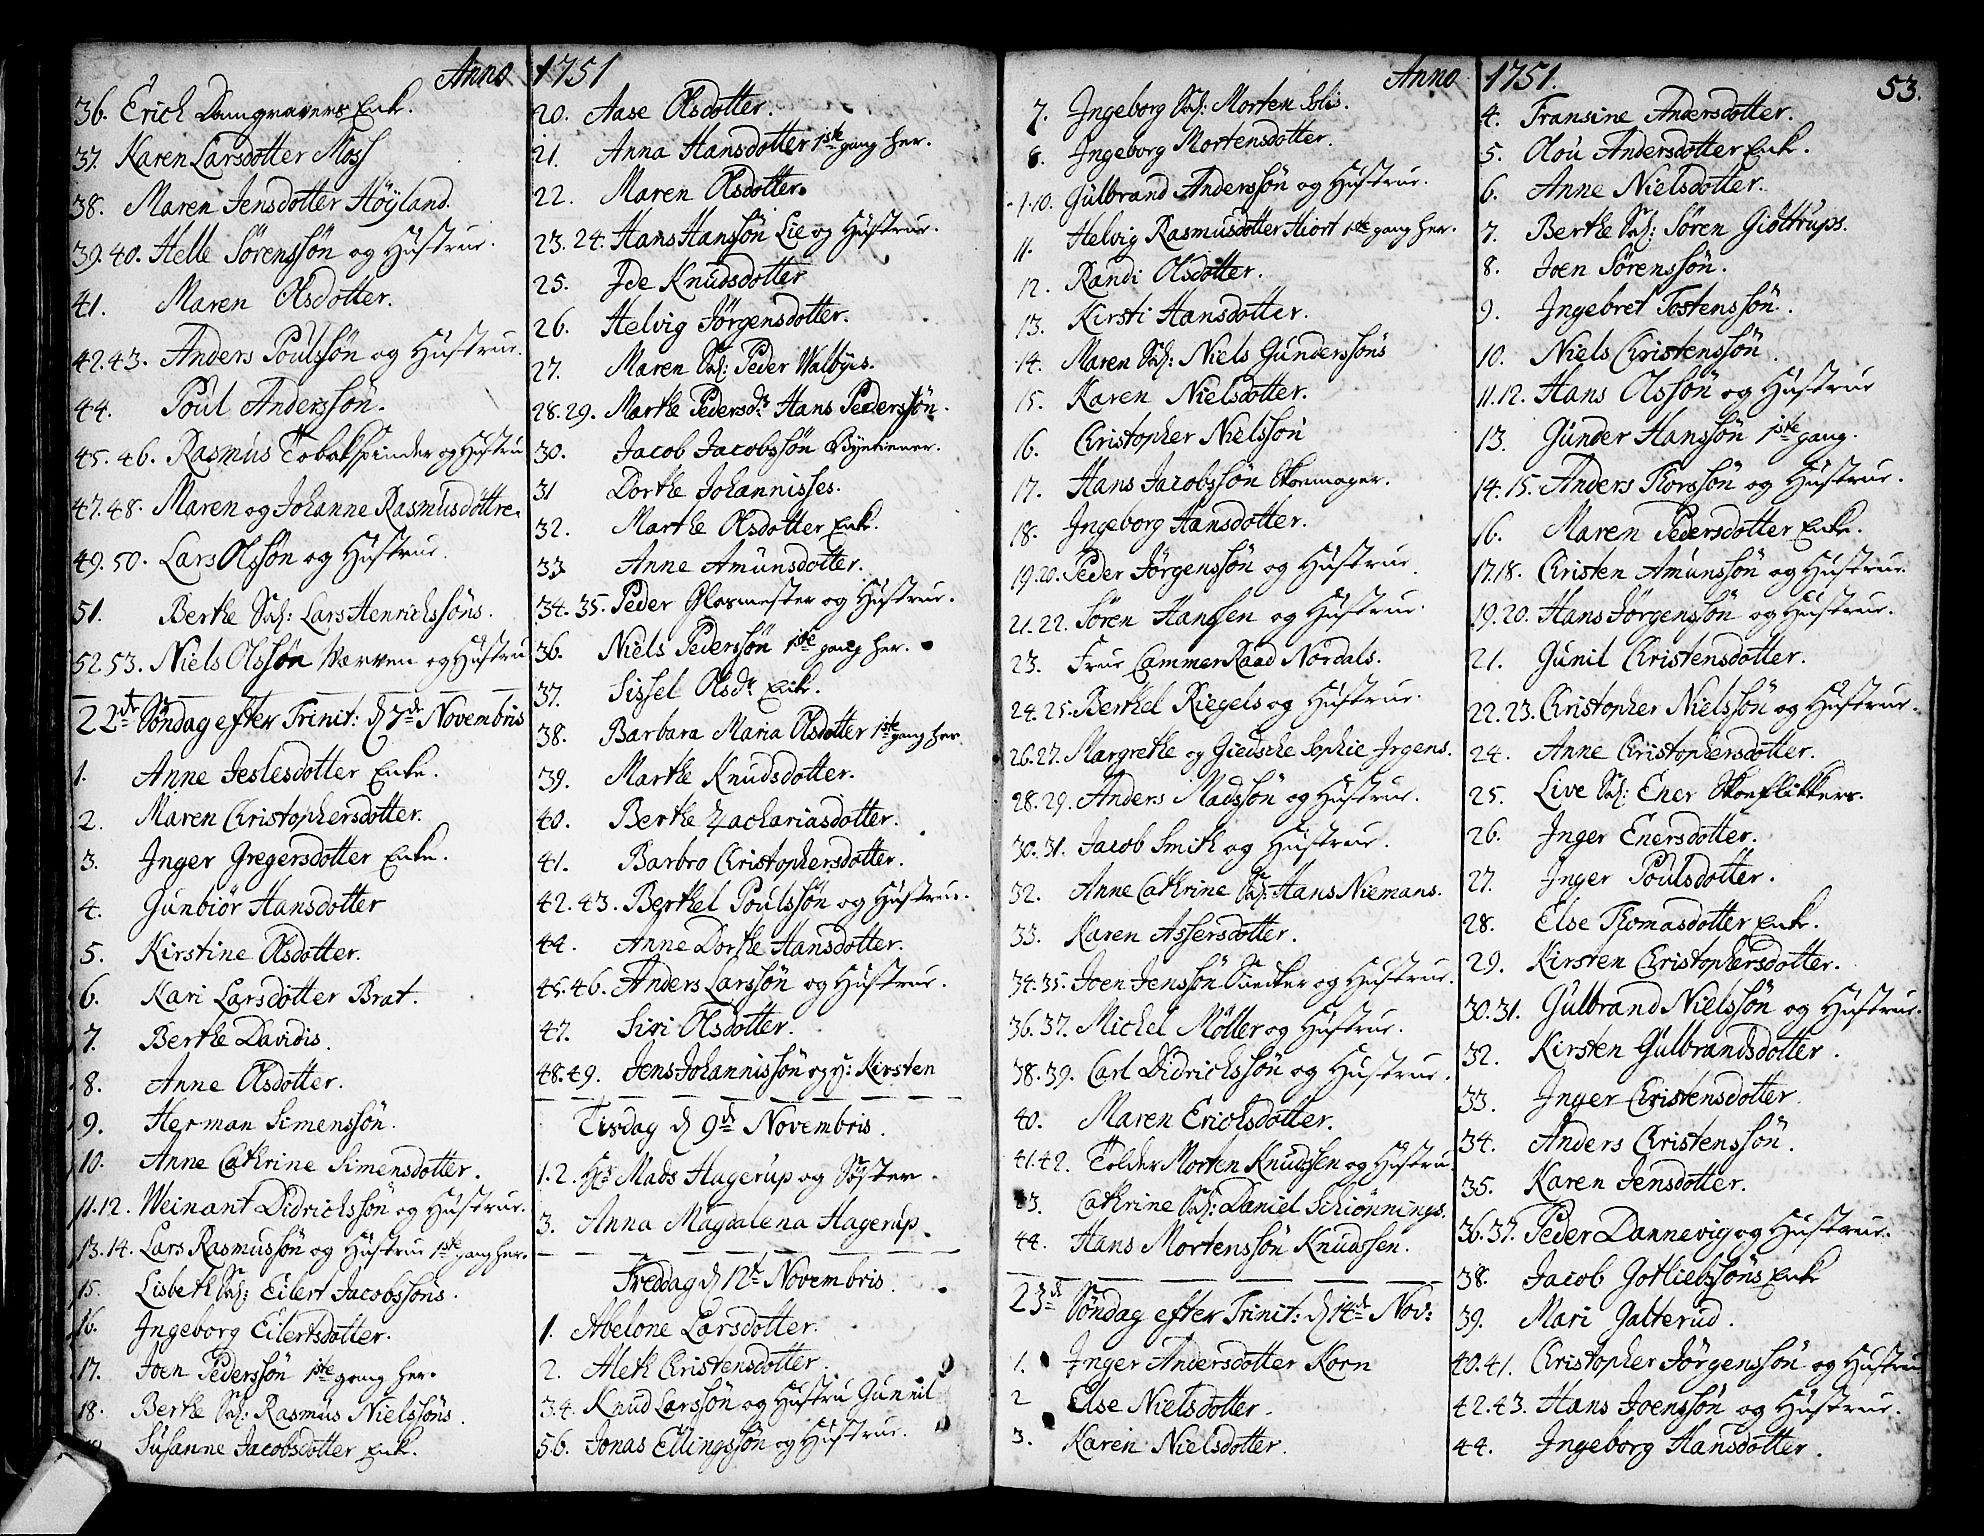 Anno 1751
36. Erich Damgravers Enke.
37. Karen Larsdotter Moss
38. Maren Jensdotter Höyland.
39.40. Helle Sörenssön og Hustrue.
41. Maren Olsdotter.
42.43. Anders Poulssön og Hustrue.
44. Poul Anderssön.
45.46. Rasmus Tobakspinder og Hustru
47.48. Maren og Johanne Rasmusdöttre.
49.50. Lars Olssön og Hustrue.
51. Berthe Sal: Lars Henrichssöns.
52.53. Niels Olssön Werven og Hustru
22de Söndag efter Trinit: d 7de Novembris
1. Anne Jeslesdotter Enke.
2. Maren Christophersdotter.
3. Inger Gregersdotter Enke.
4. Gunbiör Hansdotter
5. Kirstine Olsdotter.
6. Kari Larsdotter Brat.
7. Berthe Davidis.
8. Anne Olsdotter.
9. Herman Simenssön.
10. Anne Cathrine Simensdotter.
11.12. Weinant Didrichssön og Hustrue.
13.14. Lars Rasmussön og Hustrue 1ste gang her.
15. Lisbeth Sal: Eilert Jacobssöns.
16. Ingeborg Eilertsdotter.
17. Joen Pederssön 1ste gang her.
18. Berthe Sal: Rasmus Nielssöns.
Susanne Jacobsdotter Enke.
20. Aase Olsdotter.
21. Anna Hansdotter 1ste gang her.
22. Maren Olsdotter.
23.24. Hans Hanssön Lie og Hustrue.
25. Ide Knudsdotter
26. Helvig Jörgensdotter.
27. Maren Sal: Peder Walbyes.
28.29. Marthe Pedersdr Hans Pederssön.
30. Jacob Jacobssön Bytiener.
31 Dorthe Johannisses.
32. Marthe Olsdotter Enke.
33 Anne Amunsdotter.
34.35. Peder Glasmester og Hustrue.
36. Niels Pederssön 1ste gang her.
37. Sissel Olsdr Enke.
38. Barbara Maria Olsdotter 1ste gang her.
39. Marthe Knudsdotter.
40. Berthe Zachariasdotter.
41. Barbro Christophersdotter.
42.43. Berthel Poulssön og Hustrue.
44. Anne Dorthe Hansdotter.
45.46. Anders Larssön og Hustrue.
47. Siri Olsdotter.
48.49. Jens Johannissön og H: Kirsten
Tisdag d 9de Novembris.
1.2. Hr Mads Hagerup og Söster.
3. Anna Magdalena Hagerup.
Freddag d 12te Novembris.
1. Abelone Larsdotter.
2. Aleth Christensdotter.
3.4. Knud Larssön og Hustru Gunnil
5.6. Jonas Ellingssön og Hustrue.
Anno 1751.
53.
7. Ingeborg Sal: Morten Solis.
8. Ingeborg Mortensdotter.
9.10. Gulbrand Anderssön og Hustrue.
11. Helvig Rasmusdotter Hiort 1ste gang her.
12. Randi Olsdotter.
13. Kirsti Hansdotter.
14. Maren Sal: Niels Gunderssöns
15. Karen Nielsdotter.
16. Christopher Nielssön
17. Hans Jacobssön Skoemager.
18. Ingeborg Hansdotter.
19.20. Peder Jörgenssön og Hustrue
21.22. Sören Hanssen og Hustrue.
23. Frue CammerRaad Nordals.
24.25. Berthel Riegels og Hustrue.
26.27. Margrethe og Giedsche Sophie Irgens.
28.29. Anders Madssön og Hustrue.
30.31. Jacob Smith og Hustrue.
32. Anne Cathrine Sal: Hans Niemans.
33. Karen Assersdotter.
34.35. Joen Jenssön Snecker og Hustrue.
36.37. Michel Möller og Hustrue.
38.39. Carl Didrichssön og Hustrue.
40. Maren Erichsdotter.
41.42. Tolder Morten Knudssen og Hustru.
43. Cathrine Sal: Daniel Schiönnings.
44. Hans Mortenssön Knudssen.
23de Söndag efter Trinit: d 14de Nov:
1. Inger Andersdotter Korn
2 Else Nielsdotter.
3. Karen Nielsdotter.
4. Fransine Andersdotter.
5. Olou Andersdotter Enke.
6. Anne Nielsdotter.
7. Berthe Sal: Sören Giöttrups.
8. Joen Sörenssön.
9. Ingebret Tostenssön.
10. Niels Christenssön.
11.12. Hans Olssön og Hustrue
13. Gunder Hanssön 1ste gang.
14.15. Anders Thorssön og Hustrue.
16. Maren Pedersdotter Enke.
17.18. Christen Amunssön og Hustrue.
19.20. Hans Jörgenssön og Hustrue.
21. Gunil Christensdotter.
22.23. Christopher Nielssön og Hustrue.
24. Anne Christophersdotter.
25. Live Sal: Ener Skoeflikkers.
26. Inger Enersdotter.
27. Inger Poulsdotter.
28. Else Thomasdotter Enke.
29. Kirsten Christophersdotter.
30.31. Gulbrand Nielssön og Hustrue.
32. Kirsten Gulbrandsdotter.
33. Inger Christensdotter.
34. Anders Christenssön.
35. Karen Jensdotter.
36.37. Peder Dannevig og Hustrue.
38. Jacob Gotliebssöns Enke
39. Mari Galterud.
40.41. Christopher Jörgenssön og Hustrue
42.43. Hans Joenssön og Hustrue.
44. Ingeborg Hansdotter.